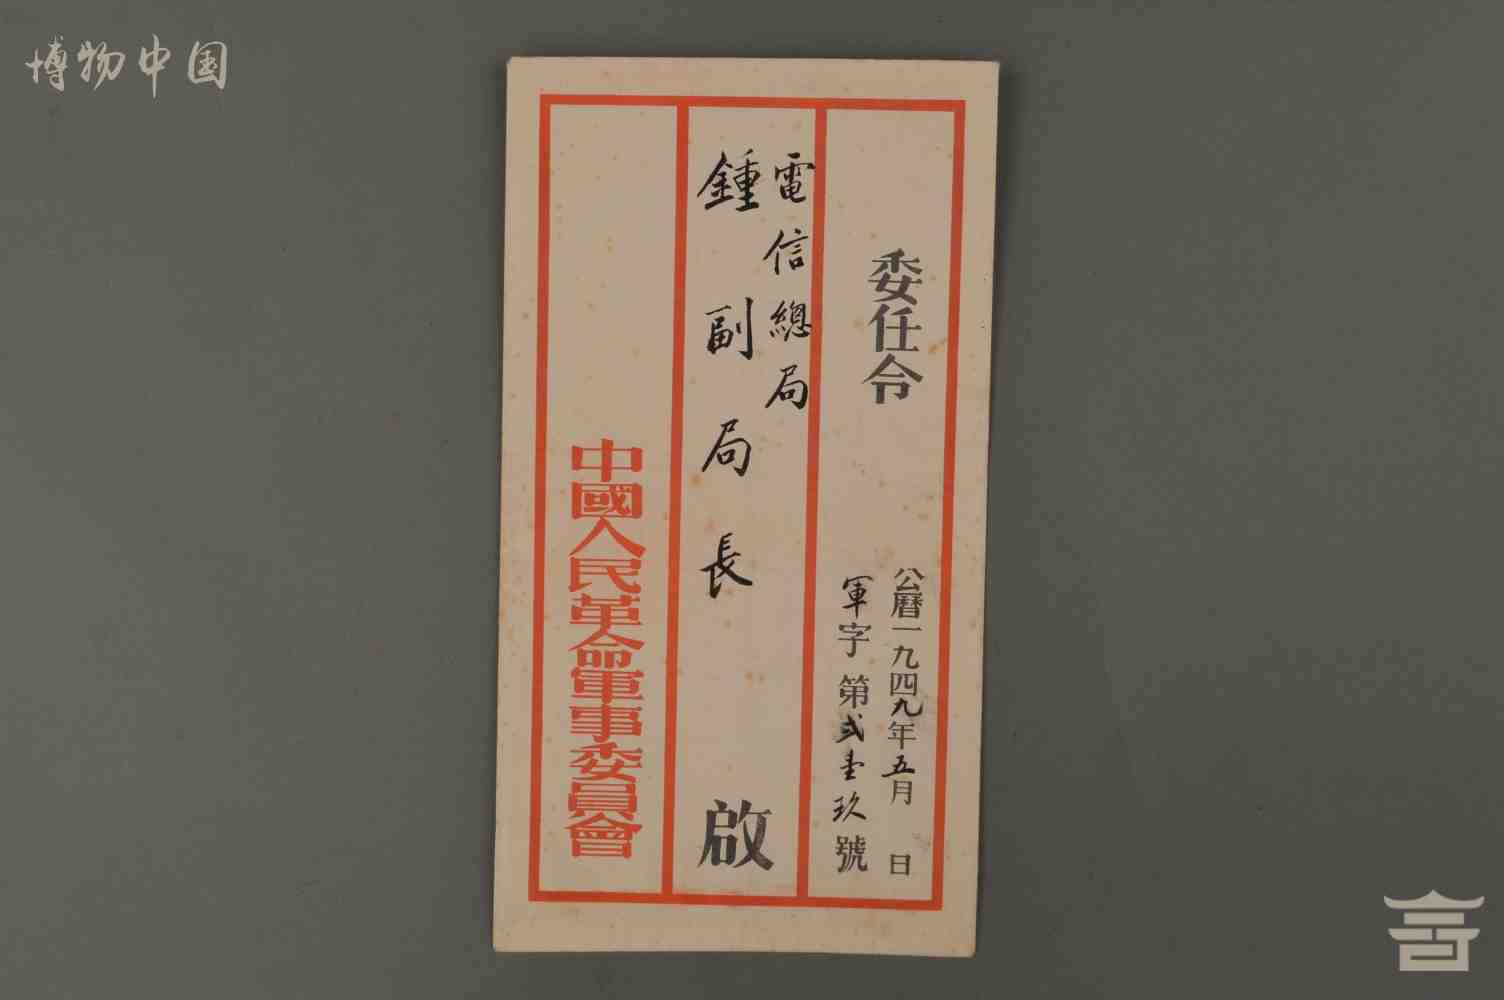 博物中国
委任令
公曆一九四九年五月 日
軍字第弍壹玖號
電信總局
鍾副局長 啟
中國人民革命軍事委員會